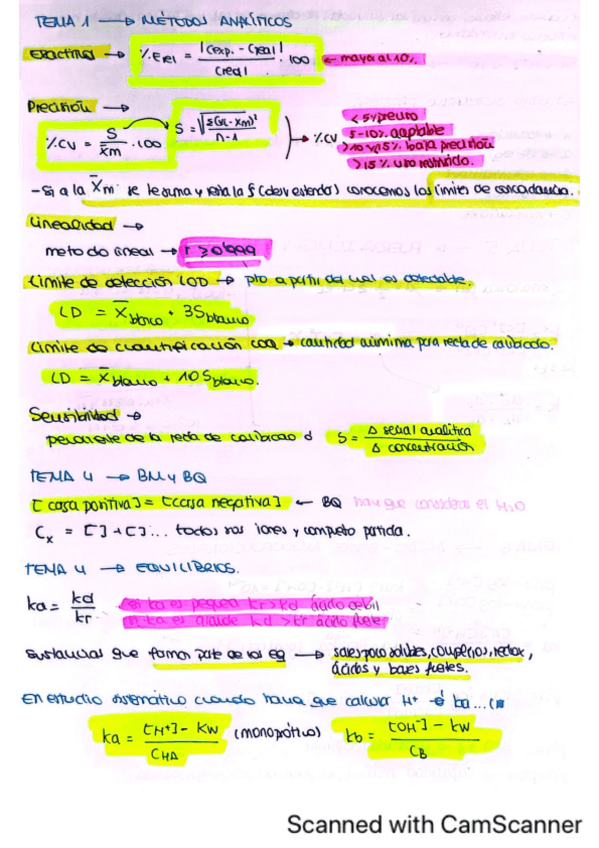 TEMA 1 → MÉTODOS ANALÍTICOS
Exactitud → %Erel = |Cexp. - Creal| / Creal · 100 ← mayor al 10%.
Precisión →
%CV = S / x̄m · 100 S = √(Σ(xi - xm)² / n-1) → %CV
< 5% preciso
5-10% aceptable
>10 y 15% baja precisión
>15% uso restringido.
- Si a la x̄m se le suma y resta la S (desv estandar) conocemos los límites de concordancia.
Linealidad →
metodo lineal → r ≥ 0'999
Límite de detección LOD → pto a partir del cual es detectable.
LD = x̄blanco + 3Sblanco
Límite de cuantificación LOQ → cantidad mínima para recta de calibrado.
LD = x̄blanco + 10 Sblanco.
Sensibilidad →
pendiente de la recta de calibrado S = Δ señal analítica / Δ concentración
TEMA 4 → BM y BQ
[carga positiva] = [carga negativa] ← BQ hay que considerar el H2O
Cx = [ ] + [ ]... todos sus iones y compuesto partida.
TEMA 4 → EQUILIBRIOS.
ka = kd / kr. si ka es pequeña kr>kd ácido débil
si ka es grande kd>kr ácido fuerte
Sustancias que forman parte de los eq → sales poco solubles, complejos, redox,
ácidos y bases fuertes.
En estudio sistemático cuando haya que calcular H+ ka...
ka = [H+] - kw / CHA (monoprótico) kb = [OH-] - kw / CB
Scanned with CamScanner